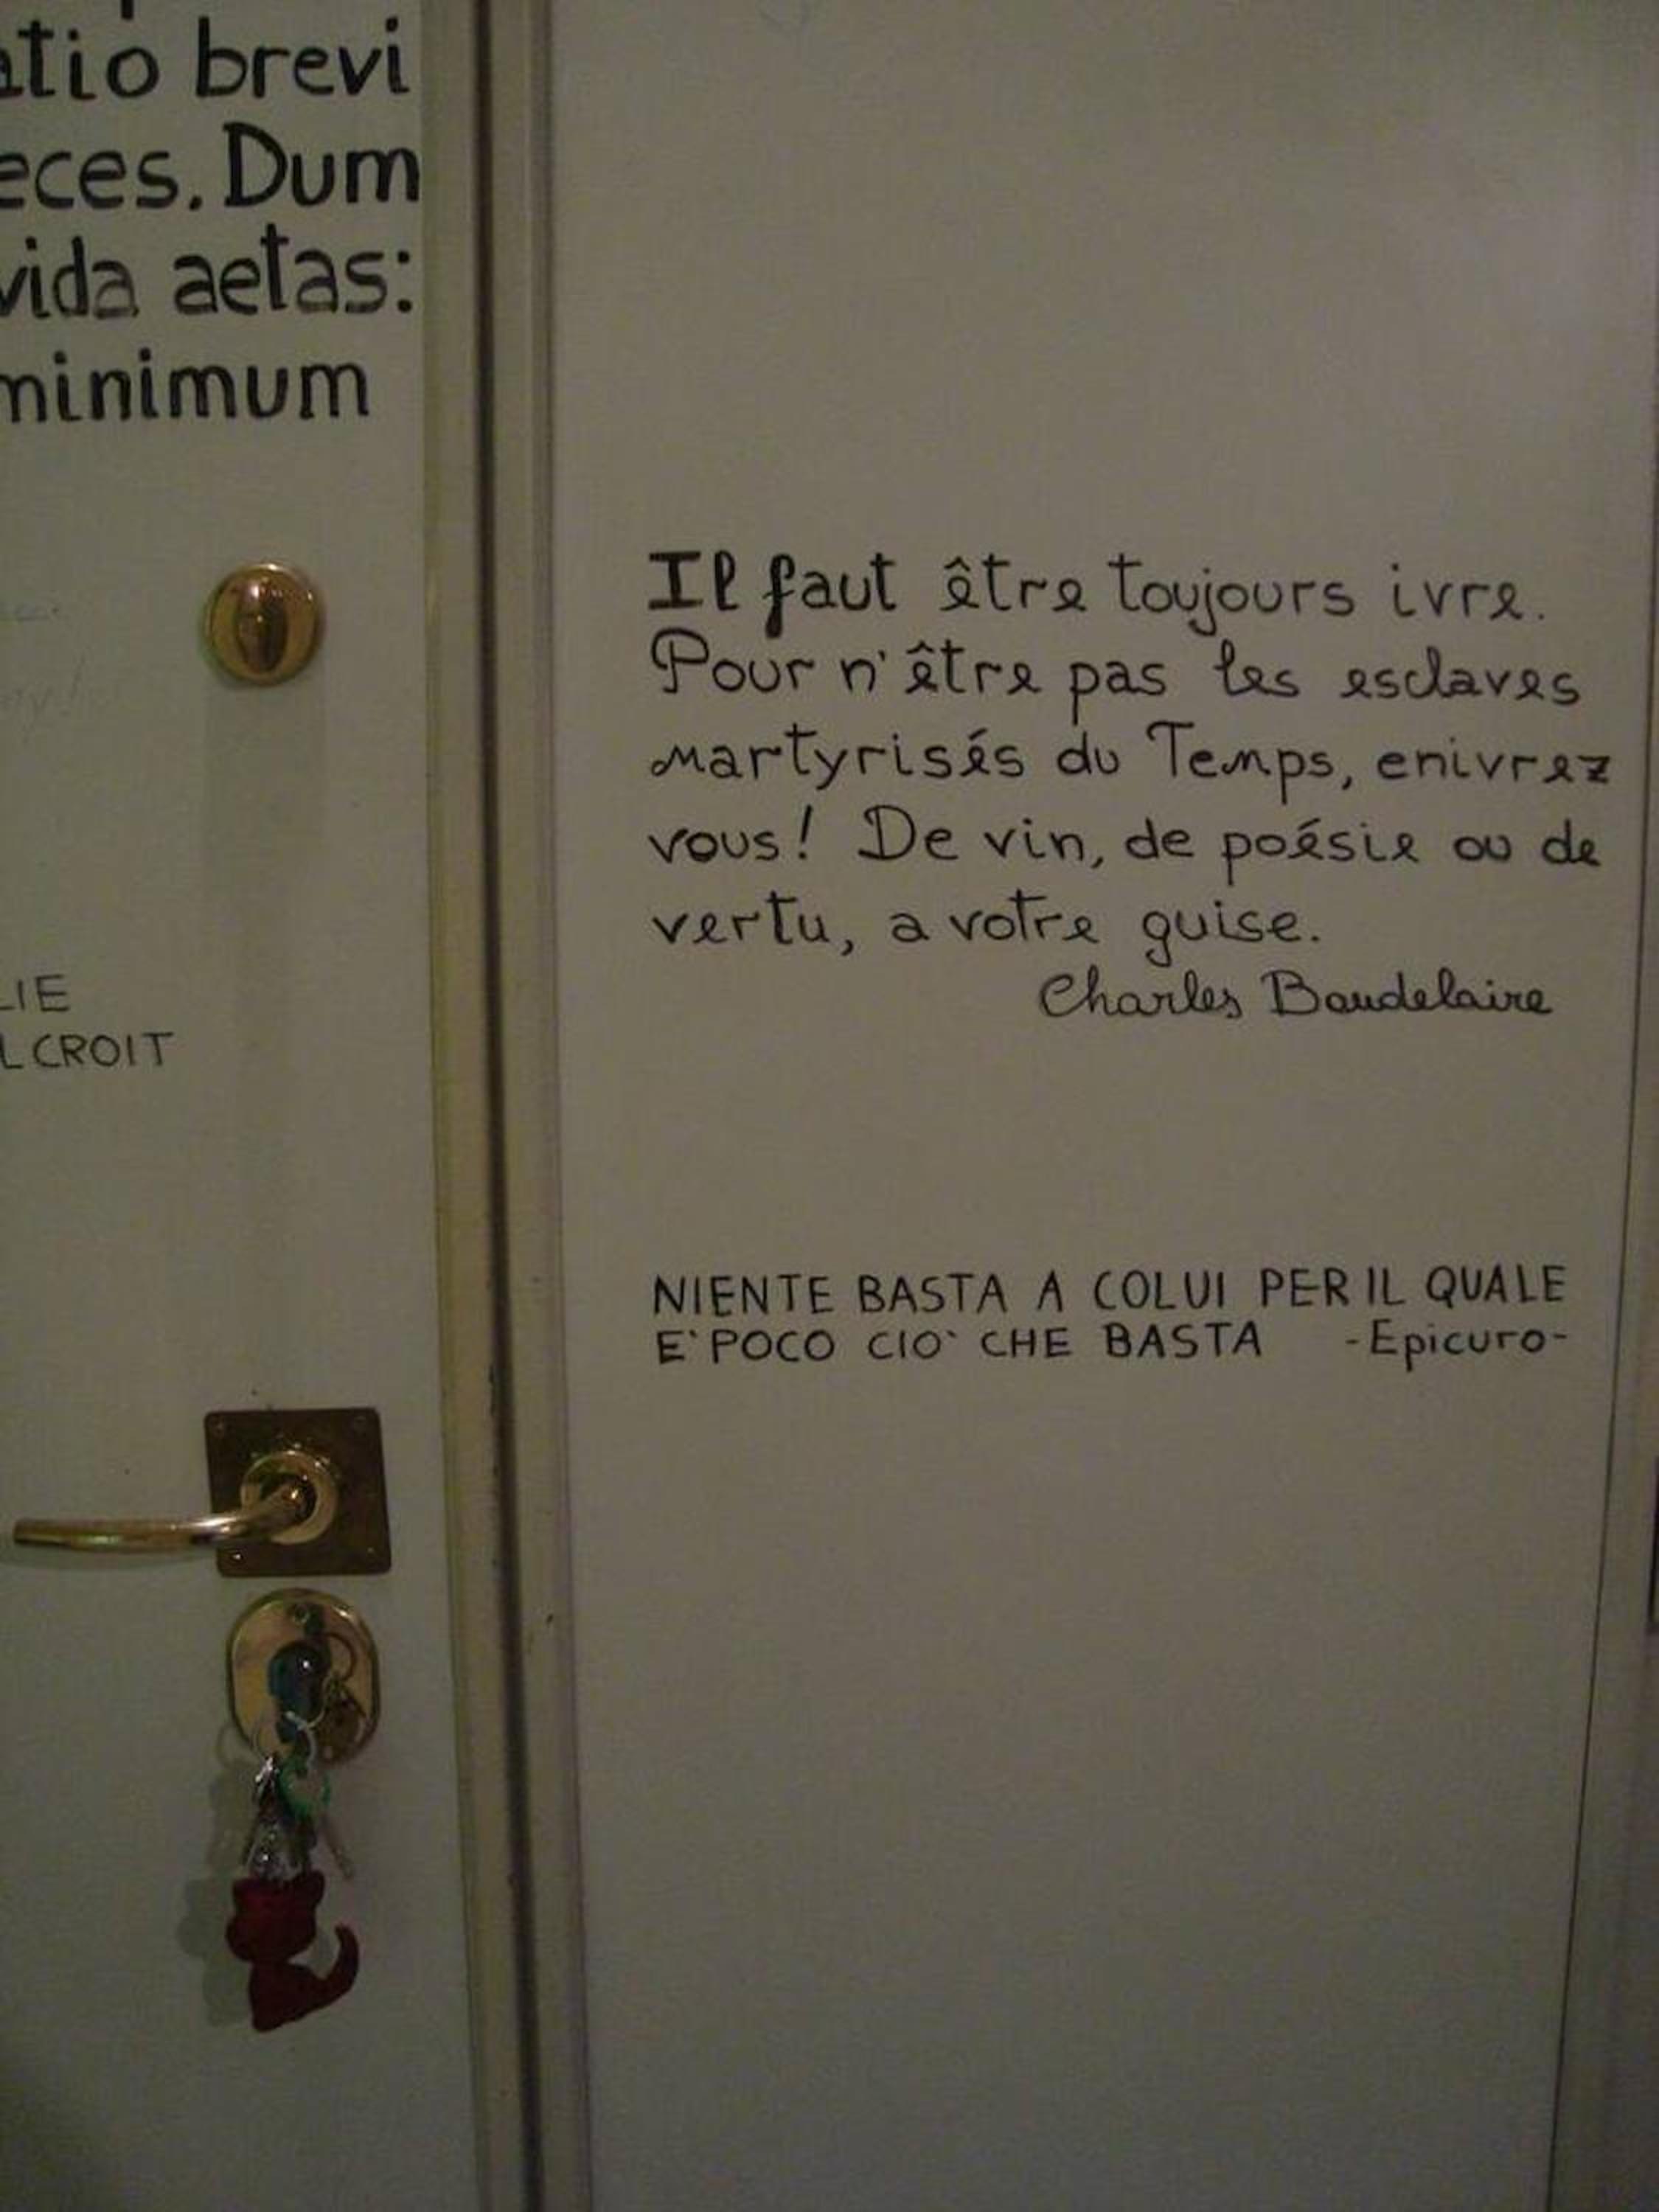 atio brevi
eces. Dum
vida aetas:
minimum
LIE
L CROIT
Il faut être toujours ivre.
Pour n'être pas les esclaves
martyrisés du Temps, enivrez
vous! De vin, de poésie ou de
vertu, a votre guise.
Charles Baudelaire
NIENTE BASTA A COLUI PER IL QUALE
E' POCO CIO' CHE BASTA -Epicuro-